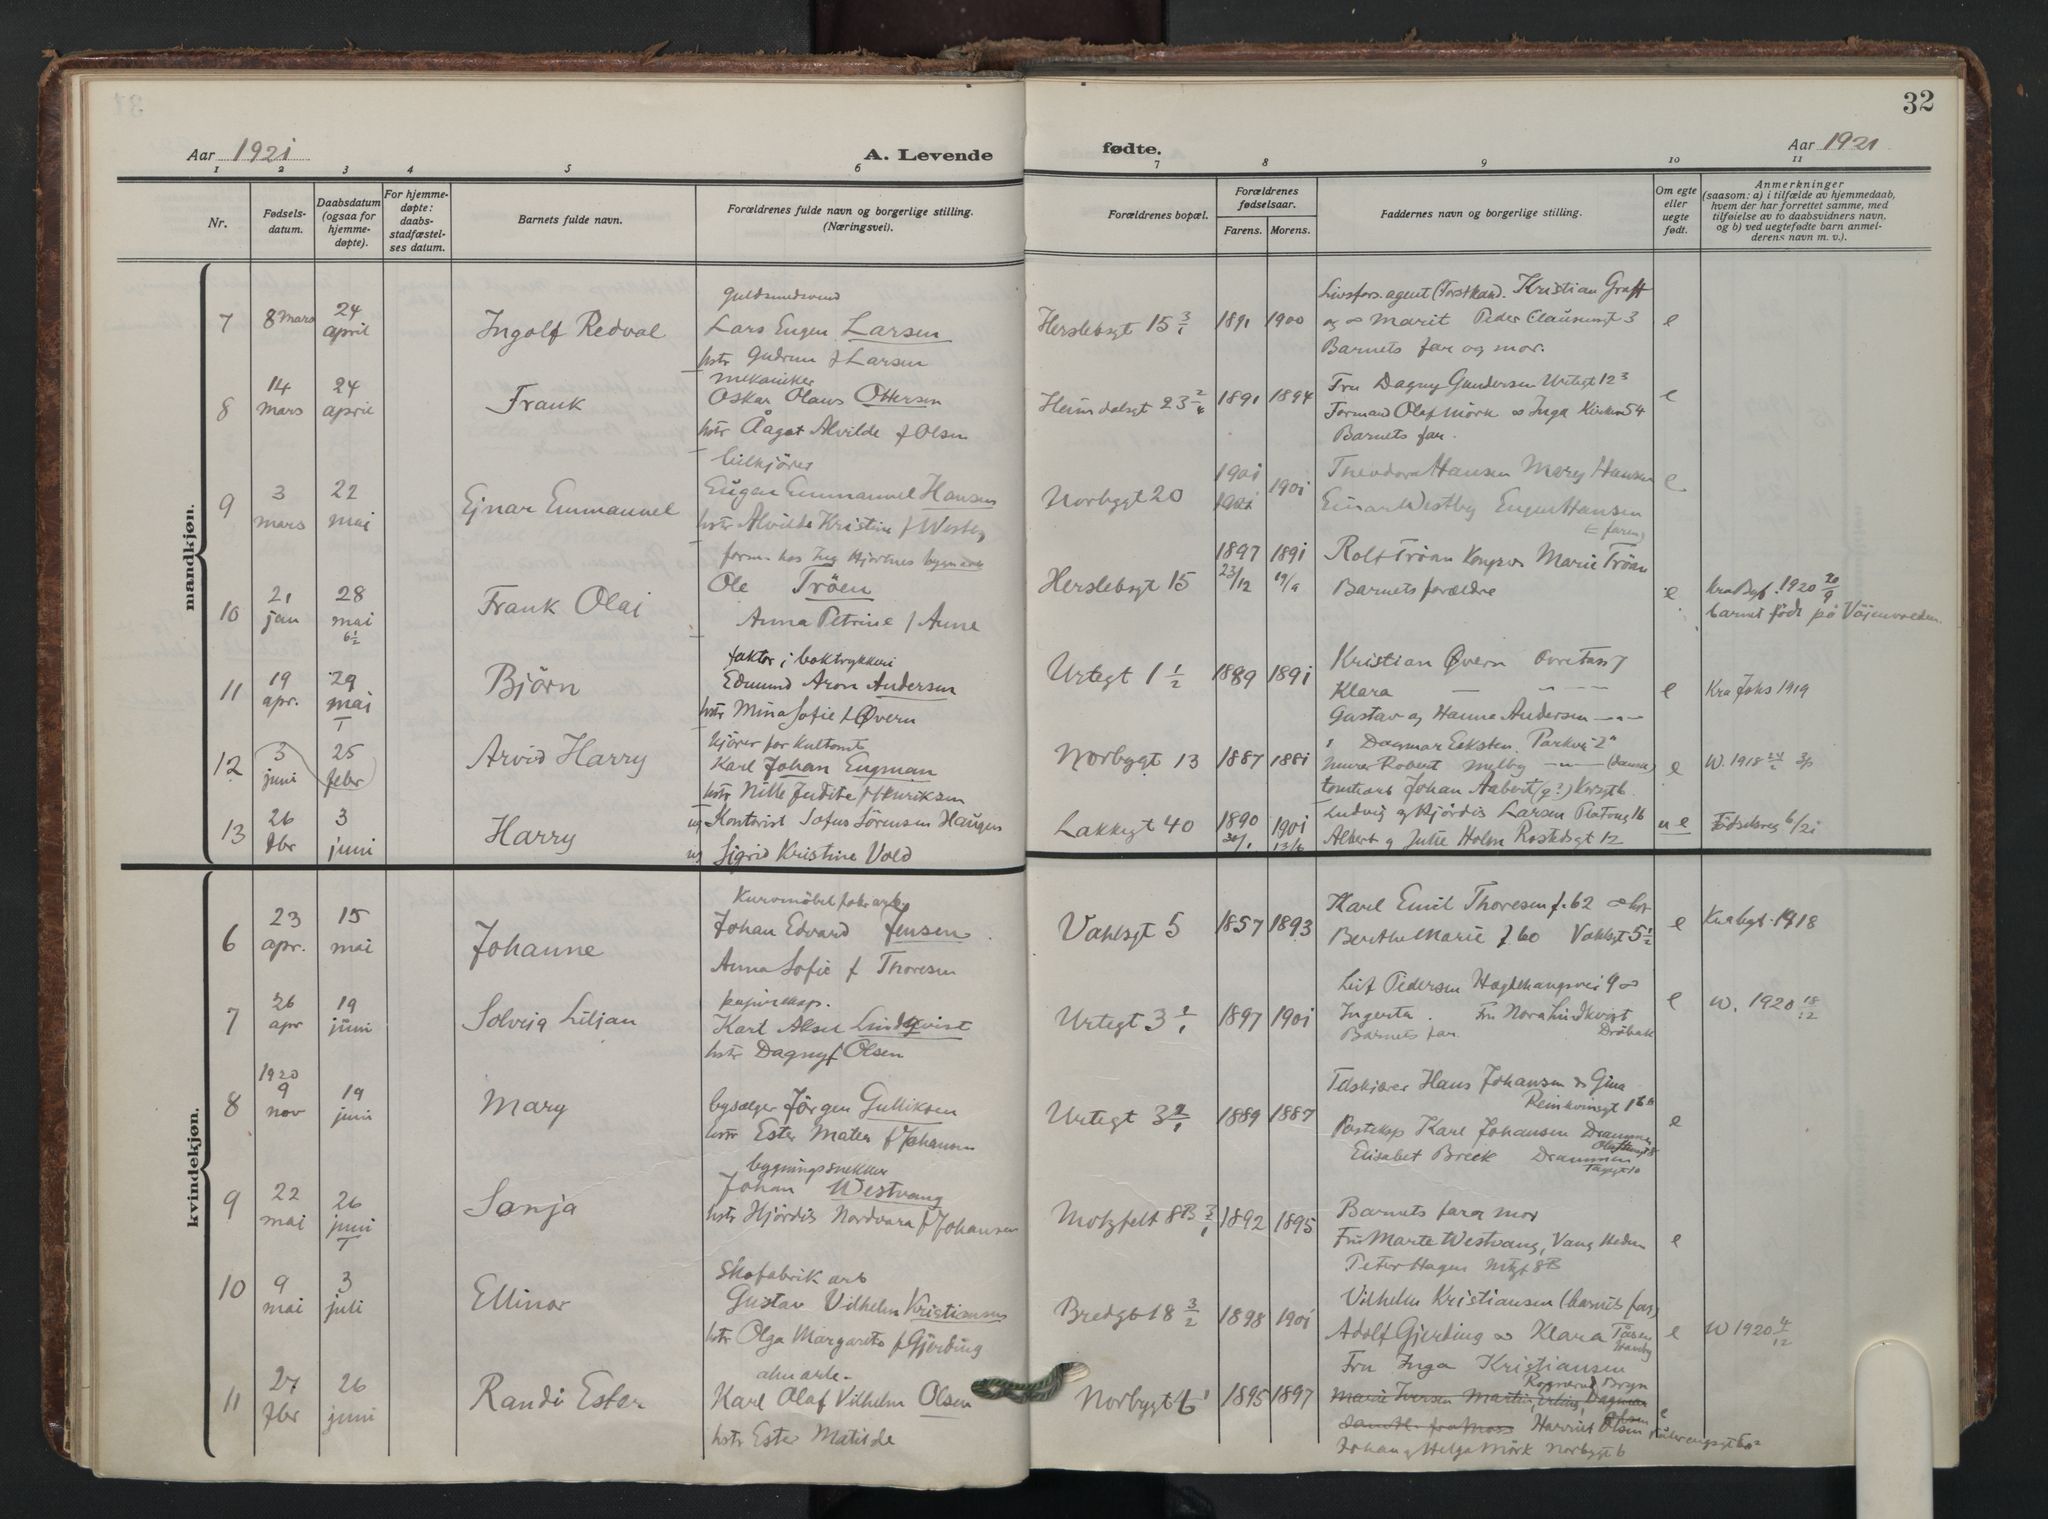 32
Aar 1921
A. Levende
fødte.
Aar 1921
1 2 3 4 5 6 7 8 9 10 11
Nr.
Fødsels-
datum.
Daabsdatum
(ogsaa for
hjemme-
døpte).
For hjemme-
døpte:
daabs-
stadfæstel-
ses datum.
Barnets fulde navn.
Forældrenes fulde navn og borgerlige stilling.
(Næringsvei).
Forældrenes bopæl.
Forældrenes
fødselsaar.
Farens. Morens.
Faddernes navn og borgerlige stilling.
Om egte
eller
uegte
født.
Anmerkninger
(saasom: a) i tilfælde av hjemmedaab,
hvem der har forrettet samme, med
tilføielse av to daabsvidners navn,
og b) ved uegtefødte barn anmel-
derens navn m. v.).
mandkjøn.
7
8 mars
24
april
Ingolf Redval
Lars Eugen Larsen
hstr Gudrun f Larsen
Herslebsgt 15 3/1
1891 1900
Livsfors.agent (Forstkand. Kristian Graff
og ∞ Marit Peder Claussønsgt 3
Barnets far og mor.
e
8
14
mars
24
april
Frank
mekaniker
Oskar Olaus Ottersen
hstr Åagot Alvilde f Olsen
Heimdalsgt 23 2/4
1891 1894
Fru Dagny Gundersen Urtegt 12 3
Formand Olaf Mörk ∞ Inga 54
Barnets far.
e
9
3
mars
22
mai
Ejnar Emmanuel
bilkjörer
Eugen Emmanuel Hansen
hstr Alvilde Kristine f Westby
Norbygt 20
1901
1901
Theodora Hansen Mary Hansen
Einar Westby Eugen Hansen
faren)
e
10
21
jan
28
mai
6 1/2
Frank Olai
form. hos Ing Hjortnes
Ole Tröen
Anna Petrine f Aune
Herslebsgt 15
1897 1891
23/12 19/9
Rolf Tröan Marie Tröan
Barnets forældre
e
Kra Byf. 1920 20/9
barnet födt på
11
19
apr.
29
mai
T
Björn
faktor i boktrykkeri
Edmund Aron Andersen
hstr Mina Sofie f Øvern
Urtegt 1 1/2
1889 1891
Kristian Øvern 7
Klara — „ — —
Gustav og Hanna Andersen — „ —
e
Kra Johs 1919
12
3
juni
25
febr
Arvid Harry
kjörer for
Karl Johan Engman
hstr Nille Judite f Henriksen
Norbygt 13
1887 1881
Dagmar Eeksten. Parkvei 2
murer Robert Melby — „ — (samme)
tomtearb Johan
e
W. 1918 24/2
13
26
fbr
3
juni
Harry
ug Kontorist Sofus Sörensen Haugen
ug Sigrid Kristine Vold
Lakkegt 40
1890 1901
30/1 13/6
Ludvig og Hjördis Larsen Platougt 16
Albert og Julie Holm Rostedsgt 12
u e
Födselsreg 6/21
kvindekjøn.
6
23
apr.
15
mai
Johanne
Kurvmöbelfabr arb
Johan Edvard Jensen
Anna Sofie f Thoresen
Vahlsgt 5
1857 1893
Karl Emil Thoresen f. 62 ∞ hstr
Berthe Marie f 60 Vahlsgt 5 1/2
e
Kra bgt. 1918
7
26
apr
19
juni
Solveig Liljan
papireksp.
Karl Alser Lindqvist
hstr Dagny f Olsen
Urtegt 3 2/1
1897 1901
Leif Pedersen Hægdehaugsvei 9 ∞
Ingerta. Fru Nora Lindkvist
Barnets far. Dröbak
e
W. 1920 18/12
8
1920
9
nov
19
juni
Mary
bysælger Jörgen Gulliksen
hstr Ester Matea f Johansen
Urtegt 3 2/1
1889 1887
Tilskjærer Hans Johansen og Gina
Steinkvinsgt
Posteksp Karl Johansen Drammen
Elisabet Breek Drammen
e
9
22
mai
26
juni
T
Sonja
bygningssnekker
Johan Westvang
hstr Hjördis Nordvara f Johansen
Motzfelt 8B 3/1
1892 1895
Barnets far og mor
Fru Marte Westvang, Vang Hedm
Peter Hagen Mtzgt 8B
e
10
9
mai
3
juli
Ellinor
Skofabrik arb
Gustav Vilhelm Kristiansen
hstr Olga Margarete f Gjerding
Bredgt 18 3/2
1898 1901
Vilhelm Kristiansen (barnets far)
Adolf Gjerding ∞ Klara
Fru Inga Kristiansen
e
W 1920 4/12
11
27
fbr
26
juni
Randi Ester
alm arb.
Karl Olaf Vilhelm Olsen
hstr Ester Matilde
Norbygt 6 1
1895 1897
Bryn
Marie Iversen Martin Dagmar
Harriet Olsen
Johan og Helga Mörk Norbygt 6
e